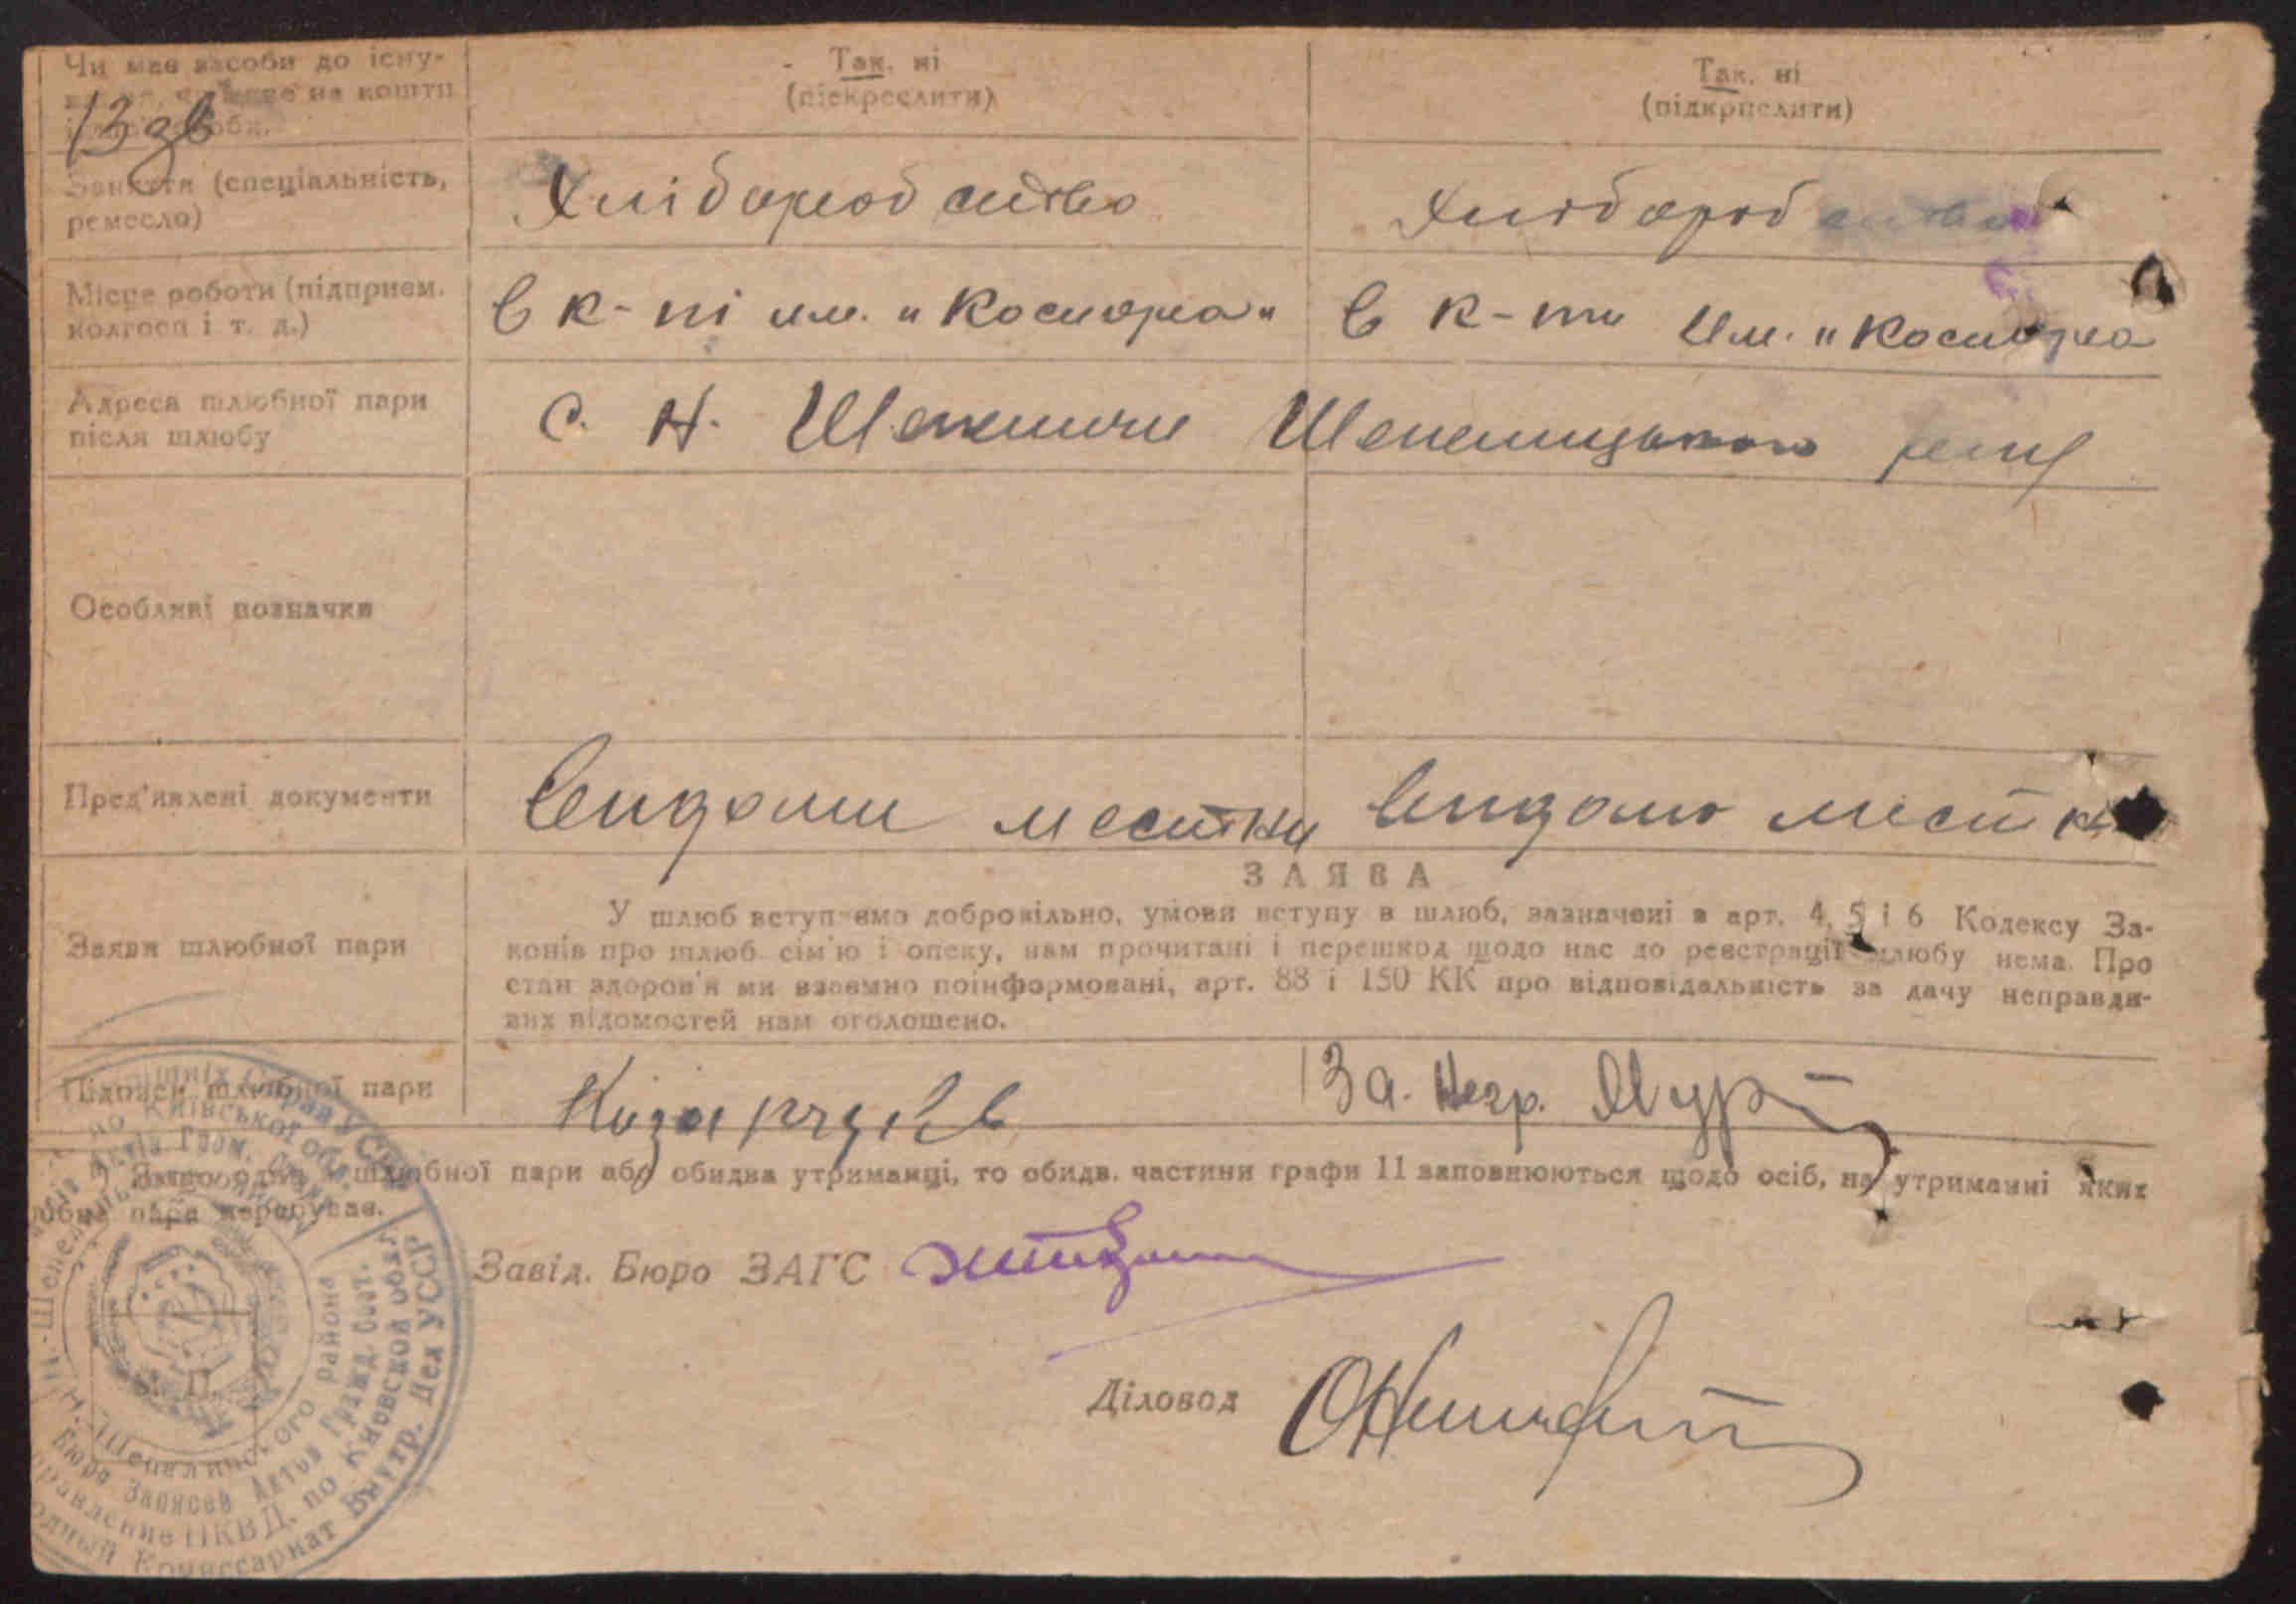 Чи має засоби до існу-
на кошти
13 зв
Так, ні
(піскреслити)
Так, ні
(підкрпслити)
Заняття (спеціальність,
ремесло)
Хліборобство
Хлібороб
Місце роботи (підприєм.
колгосп і т. д.)
в к-пі им. "Косиора"
в к-пи Им. "Косиора
Адреса шлюбної пари
після шлюбу
с. Н. Шепеличи Шепелицького
Особливі позначки
Пред'явлені документи
Видоми местки
Видомо мест
ЗАЯВА
Заяви шлюбної пари
У шлюб вступаємо добровільно, умови вступу в шлюб, зазначені в арт. 4, 5 і 6 Кодексу За-
конів про шлюб сім'ю і опеку, нам прочитані і перешкод щодо нас до реєстрації шлюбу нема. Про
стан здоров'я ми взаємно поінформовані, арт. 88 і 150 КК про відповідальність за дачу неправди-
вих відомостей нам оголошено.
Підписи шлюбної пари
За. Негр.
шлюбної пари або обидва утриманці, то обидв. частини графи 11 заповнюються щодо осіб, на утриманні яких
пара перебуває.
Завід. Бюро ЗАГС
Діловод
Київської обл.
Н.-Шепелицкого района
Бюро Записей Актов Гражд. Сост.
Управление НКВД по Киевской обл.
Народный Комиссариат Внутр. Дел УССР